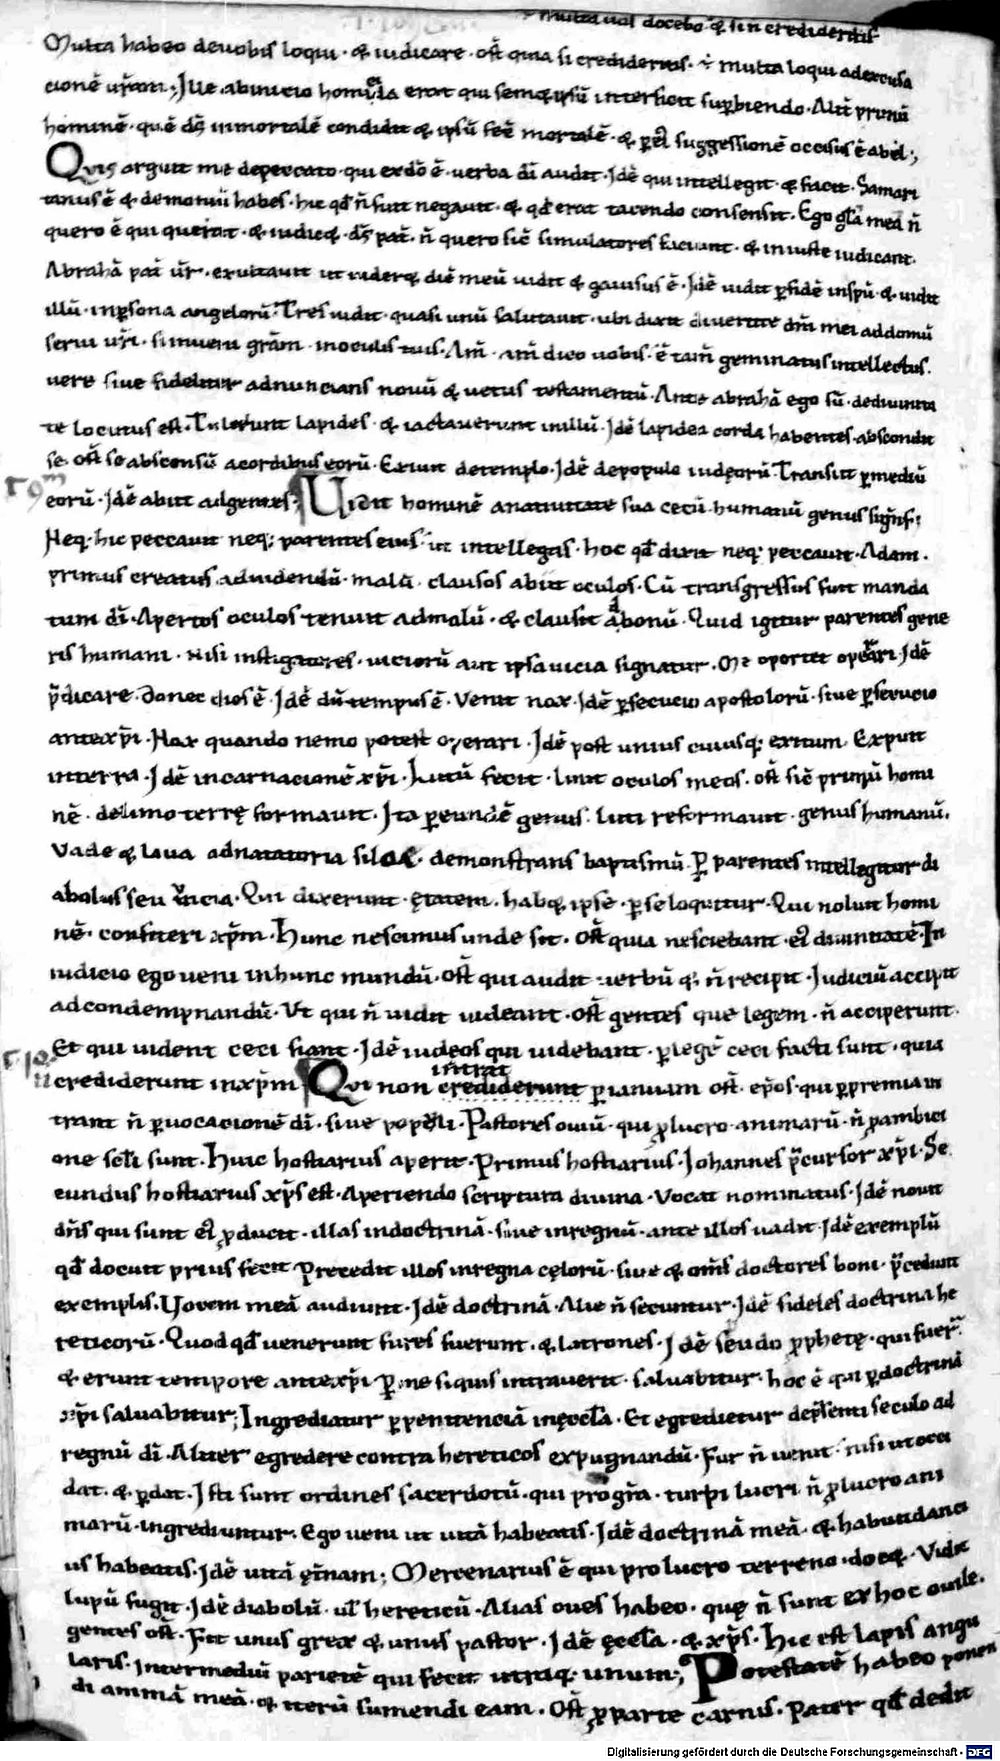 multa uob docebo & si n̄ credideritis
Multa habeo deuobis loqui · & iudicare · ost̄ quia si credideritis · ÷ multa loqui adexcusa
cionē ur̄am ; Ille abinicio homicida erat qui semet ipsū interficit suꝑbiendo · Alit̄ primū
hominē · quē ds̄ inmortalē condidit & ipsū fec̄ mortalē · & ꝑ ei᷒ suggestionē occisus ē abel ;
Quis arguit me depeccato · qui exdō ē · uerba dī audit · Idē qui intellegit · & facit · Samari
tanus ē & demoniū habes · hic qd̄ n̄ fuit negauit · & qd̄ erat tacendo consensit · Ego glā meā n̄
quero ē qui querat · & iudicet · ds̄ pat̄ · n̄ quero sic̄ simulatores faciunt · & iniuste iudicant ·
Abrahā pat̄ ur̄ · exultauit ut uideret diē meū uidit & gauisus ē · Idē uidit ꝑfidē inspū · & uidit
illū · inꝑsona angelorū · Tres uidit · quasi unū salutauit · ubi dixit diuertite dn̄i mei addomū
serui ur̄i · si inueni grām · inoculis tuis · Am̄ · am̄ dico uobis · ē tam̄ geminatus intellectus ·
uere siue fideliter adnuncians nouū & uetus testamentū · Ante abrahā ego sū · dediuinita
te locutus est · Tulerunt lapides · & iactauerunt inillū · Idē lapidea corda habentes · abscondit
se · ost̄ se absconsū acordibus eorū · Exiuit detemplo · Idē depopulo iudęorū · Transiit ꝑmediū
eorū · Idē abiit adgentes ; Uidit hominē anatiuitate sua cecū · humanū genus signif̄ ;
Neq; hic peccauit neq; parentes eius · ut intellegas · hoc qd̄ dixit neq; peccauit · Adam ·
primus creatus aduidendū · malū · clausos abuit oculos · Cū transgressus fuit manda
tum dī · Apertos oculos tenuit admalū · & clausit adbonū · Quid igitur parentes gene
ris humani · nisi instigatores · uiciorū aut ipsa uicia signatur · Me oportet operari · Idē
p̄dicare · donec dies ē · Idē dū tempus ē · Venit nox · Idē ꝑsecucio apostolorū · siue ꝑsecucio
antexp̄i · Nox quando nemo potest operari · Idē post unius cuiusq; exitum · Expuit
interra · Idē incarnacionē xp̄i · Lutū fecit · liniit oculos meos · ost̄ sic̄ primū homi
nē · delimo terrę formauit · Ita ꝑeundē genus · luti reformauit · genus humanū ·
Vade & laua adnatatoria siloe · demonstrans baptismū · Ꝑ parentes intellegitur di
abolus seu uicia · Qui dixerunt · ętatem · habet ipse · ꝑ se loquitur · Qui nolunt homi
nē · confiteri xp̄m · Hunc nescimus unde sit · Ost̄ quia nesciebant · ei᷒ diuinitatē · In
iudicio ego ueni inhunc mundū · Ost̄ qui audit uerbū & n̄ recipit · Iudiciū accipit
adcondempnandū · Ut qui n̄ uidit uideant · Ost̄ gentes que legem · n̄ acciperunt ·
Et qui uident ceci fiant · Idē iudeos qui uidebant · ꝑ legē ceci facti sunt · quia
n̄ crediderunt inxp̄m
intrat
Qui non crediderunt ꝑ ianuam ost̄ · ep̄os · qui ꝑ premia in
trant n̄ ꝑ uocacionē dī · siue populi · Pastores ouiū · qui ꝓ lucro animarū · n̄ ꝑ ambici
one · Huic hostiarius aperit · Primus hostiarius · Iohannes p̄cursor xp̄i · Se
cundus hostiarius xp̄s est · Aperiendo scriptura diuina · Vocat nominatus · Idē nouit
dn̄s qui sunt ei᷒ ꝓducit · illas indoctrinā · siue inregnū · ante illos uadit · Idē exemplū
qd̄ docuit prius fecit Precedit illos inregna cęlorū · siue & om̄s doctores boni · p̄cedunt
exemplis · Uocem meā audiunt · Idē doctrinā · Alie n̄ secuntur · Idē fideles doctrina he
reticorū · Quod qd̄ uenerunt fures fuerunt · & latrones · Idē seudo ꝓphetę · qui fuer̄
& erunt tempore antexp̄i ꝑ me siquis intrauerit · saluabitur · hoc ē qui ꝑ doctrinā
xp̄i saluabitur ; Ingrediatur ꝑ penitenciā inęccl̄a · Et egredietur dep̄senti seculo ad
regnū dī · Aliter egredere contra hereticos expugnandū · Fur n̄ uenit · nisi ut occi
dat · & ꝑdat · Isti sunt ordines sacerdotū · qui pro grā · turpi lucri n̄ ꝓ lucro ani
marū · ingrediuntur · Ego ueni ut uitā habeatis · Idē doctrinā meā · & habundanci
us habeatis · Idē uitā ęt̄nam ; Mercenarius ē qui pro lucro terreno · docet · Vidit
lupū fugit · Idē diabolū · ul̄ hereticū · Alias oues habeo · quę n̄ sunt ex hoc ouile ·
gentes ost̄ · Fit unus grex & unus pastor · Idē ęccl̄a · & xp̄s · Hic est lapis angu
laris · Intermediū parietē qui fecit utraq; unum ; Potestatē habeo ponen
di animā meā · & iterū sumendi eam · Ost̄ ꝓ parte carnis · Pater qd̄ dedit
Digitalisierung gefördert durch die Deutsche Forschungsgemeinschaft - DFG